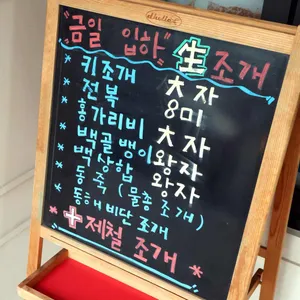 "금일 입하" 生 조개
* 키조개 大자
* 전복 8미
* 홍가리비 大자
* 백골뱅이 왕자
* 백상합 왕자
* 동죽 (물총조개)
* 동해비단조개
* + 제철 조개 *